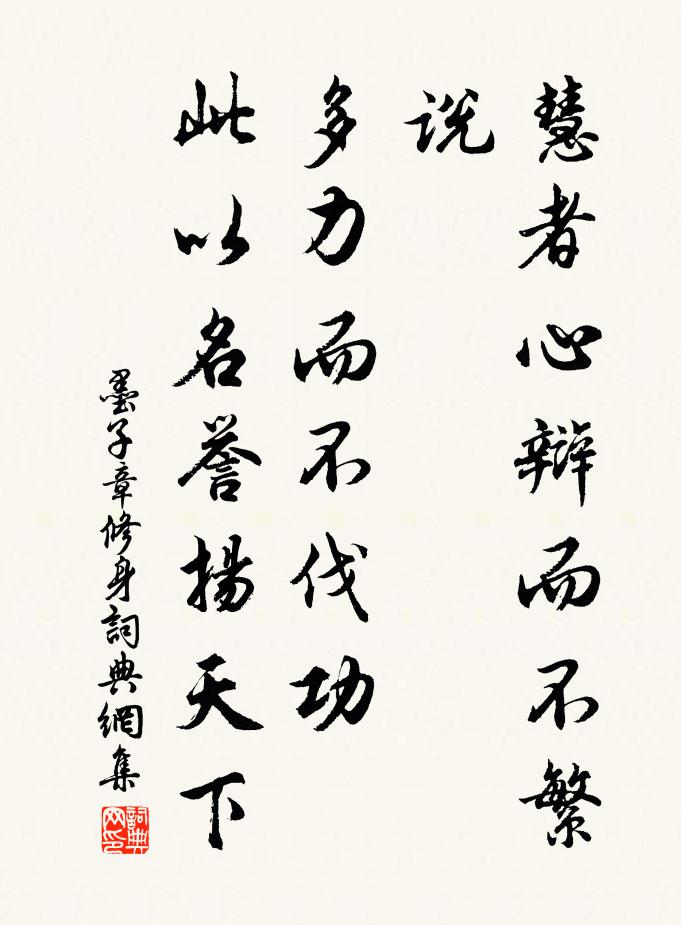 慧者心辯而不繁
説
多力而不伐功
此以名譽揚天下
墨子章修身詞典網集
詞典
网印